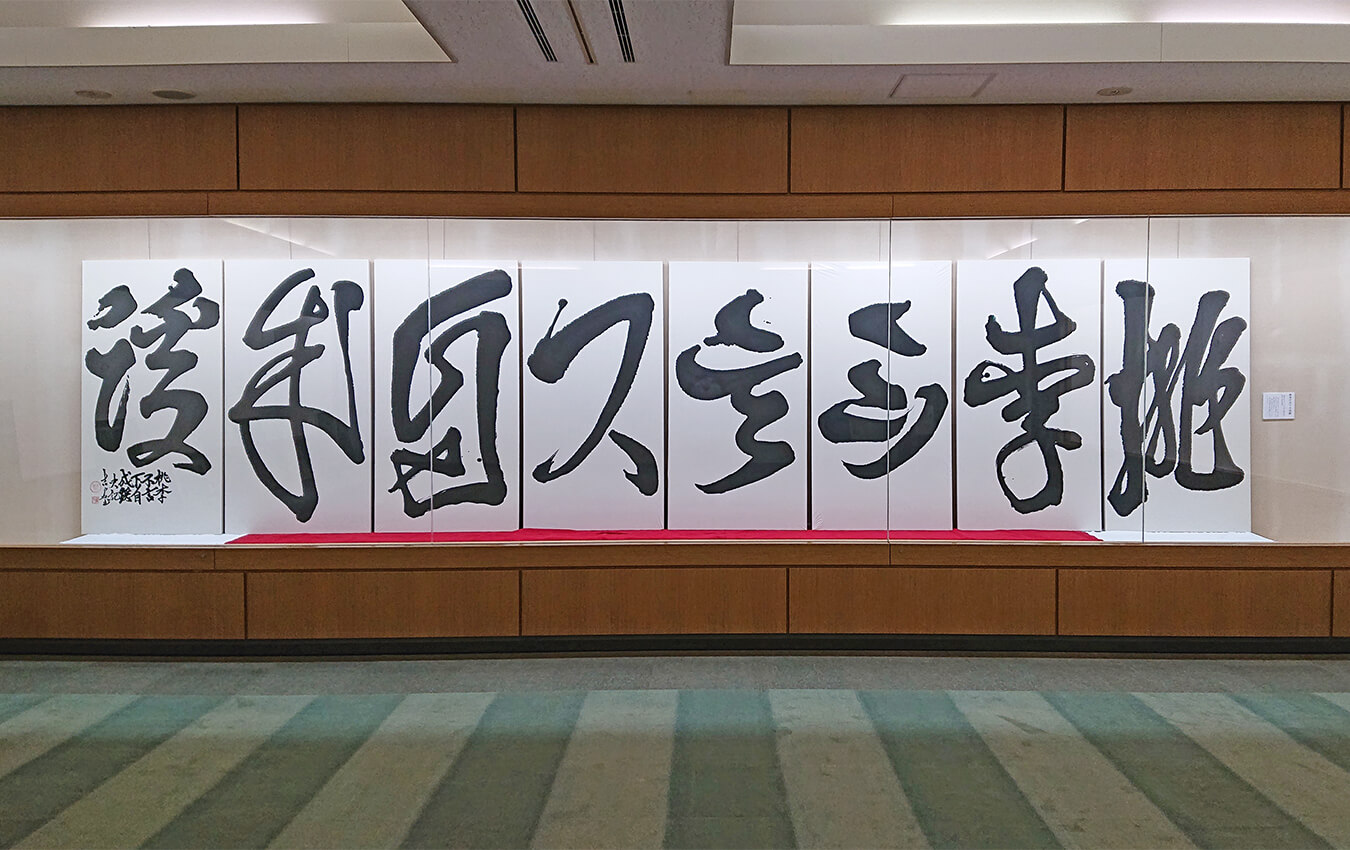 桃李不言下自成蹊
桃李
不言
下自
成蹊